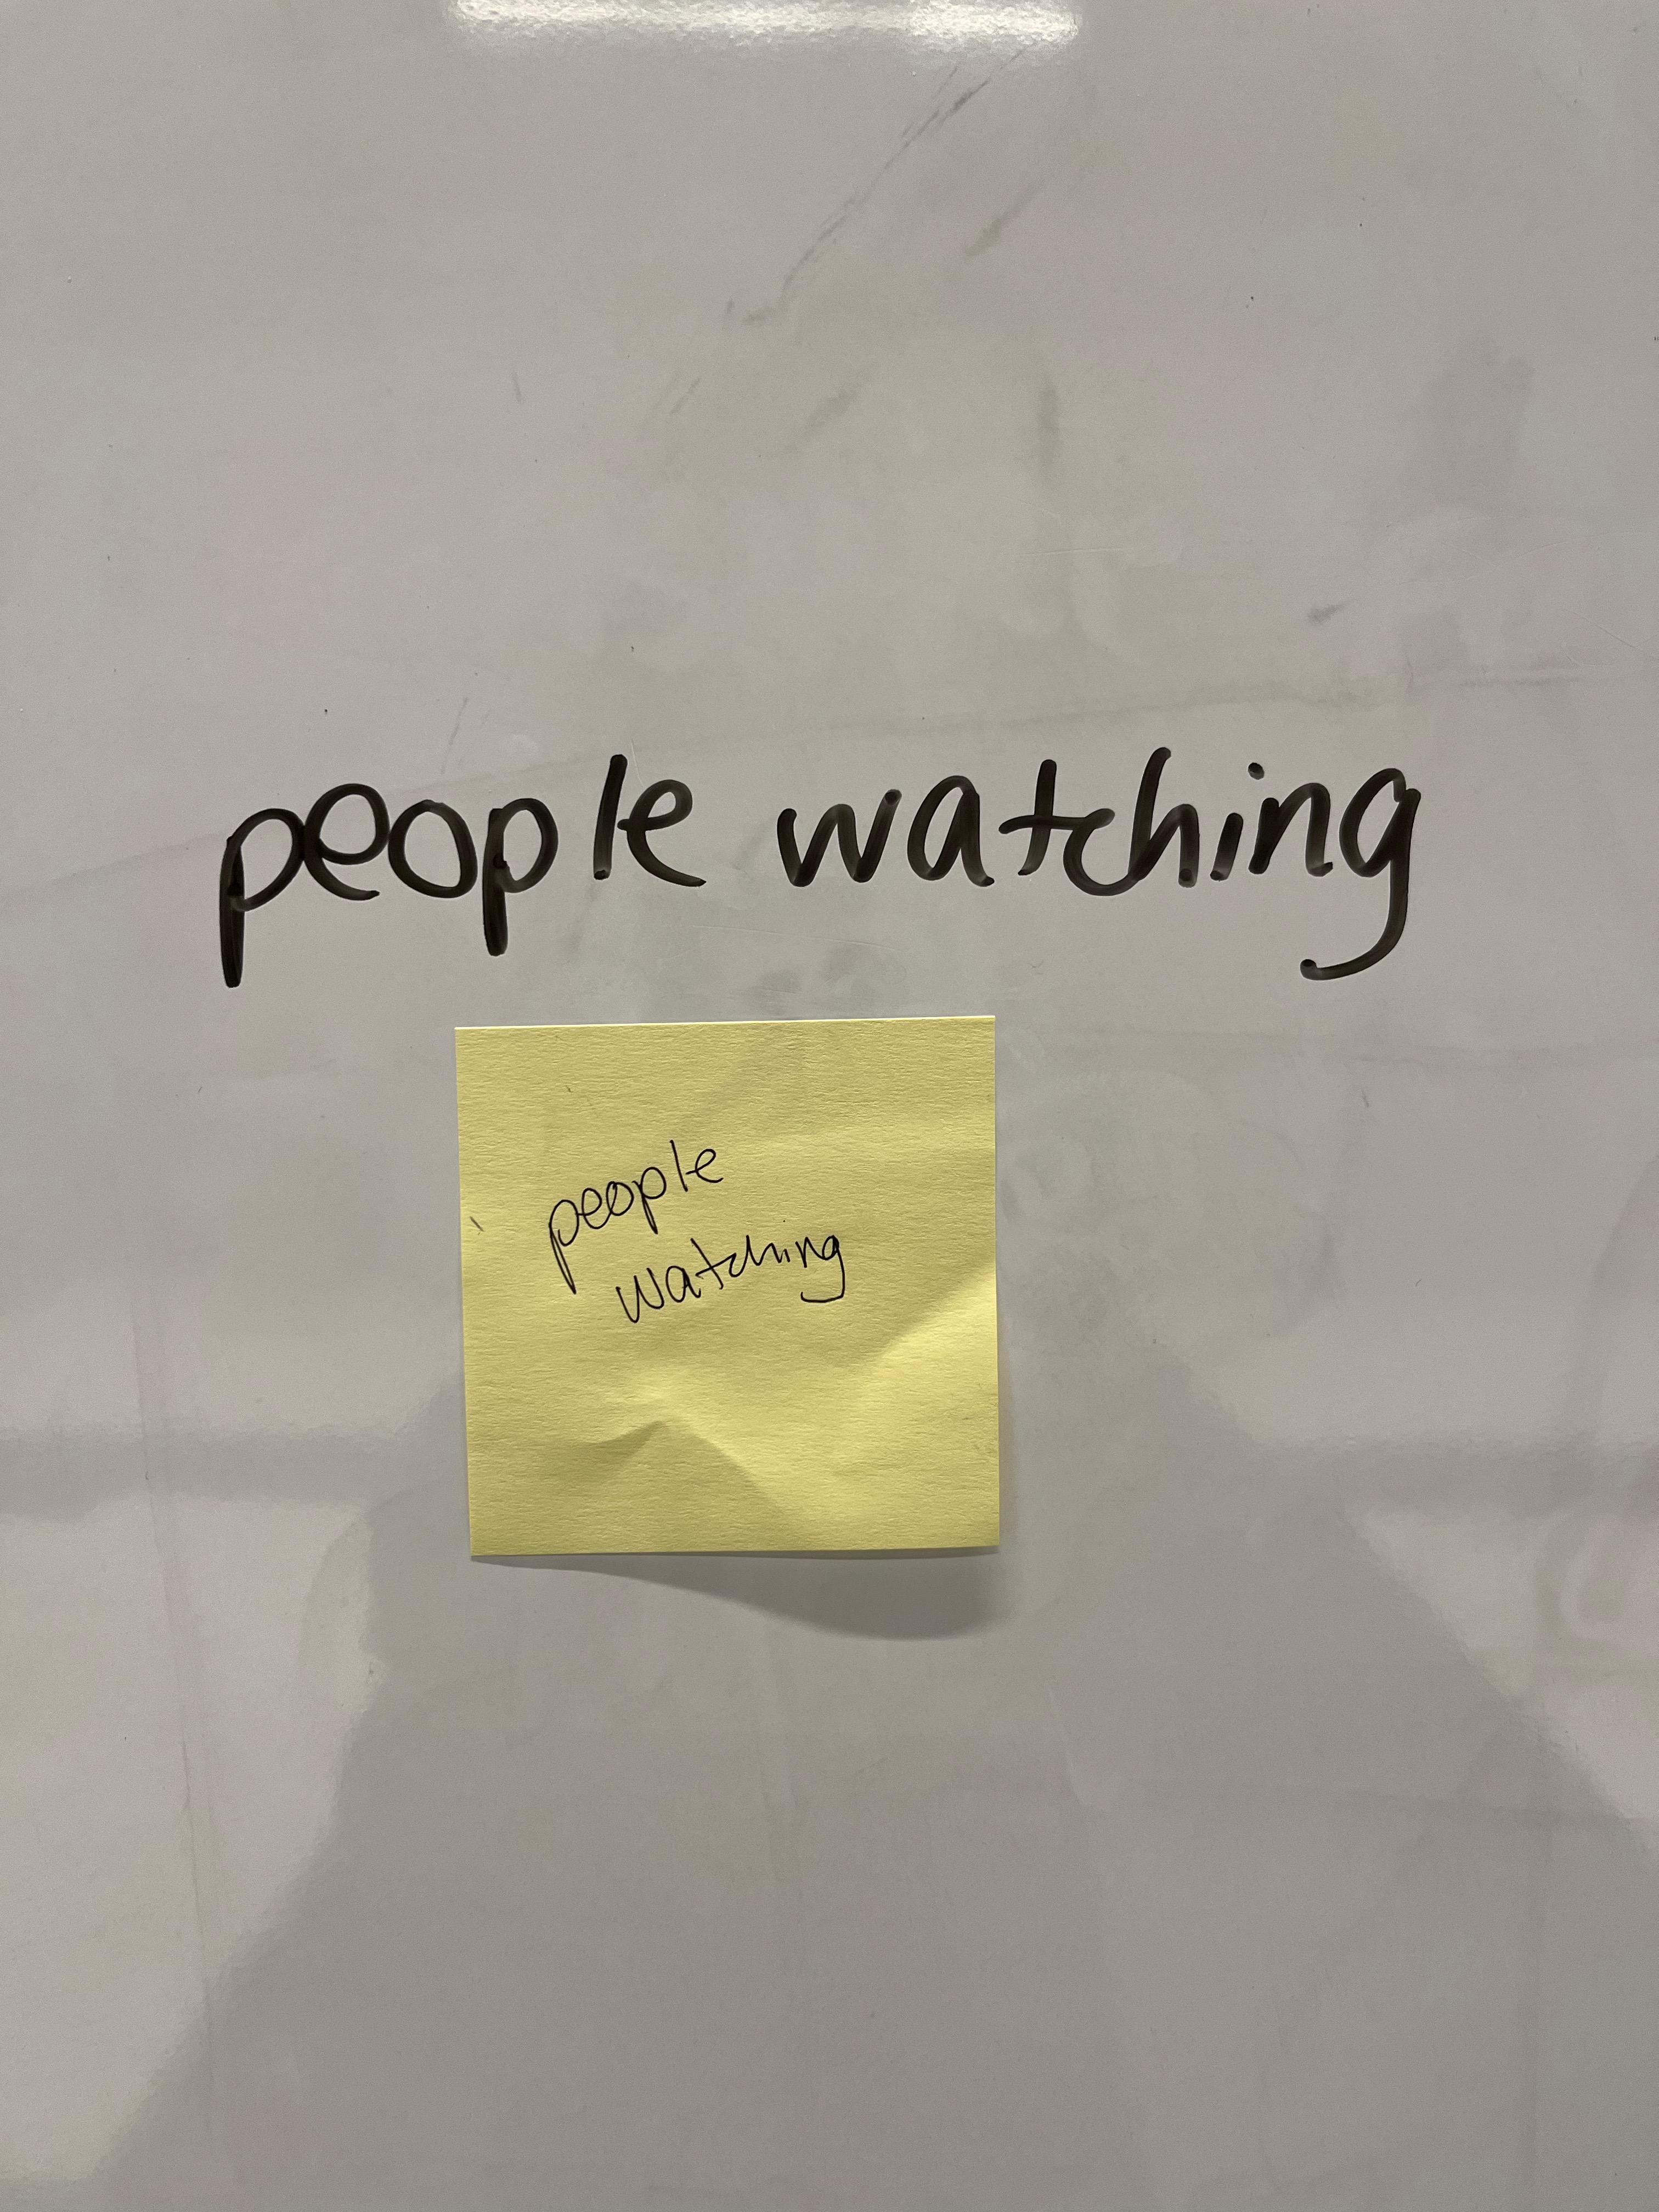 people watching
people
watching